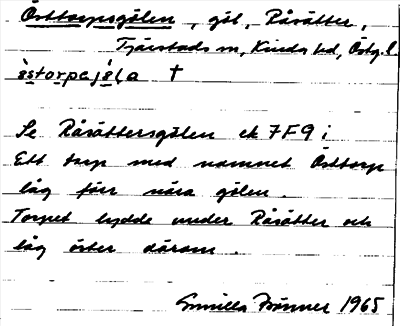 Östtorpsgölen, göl, Råsätter,
Tjärstads sn, Kinda hd, Östg.l.
östorpajöla †
Se Råsättersgölen ek 7F9i
Ett torp med namnet Östtorp
låg förr nära gölen.
Torpet lydde under Råsätter och
låg öster därom.
Gunilla Brönner 1965